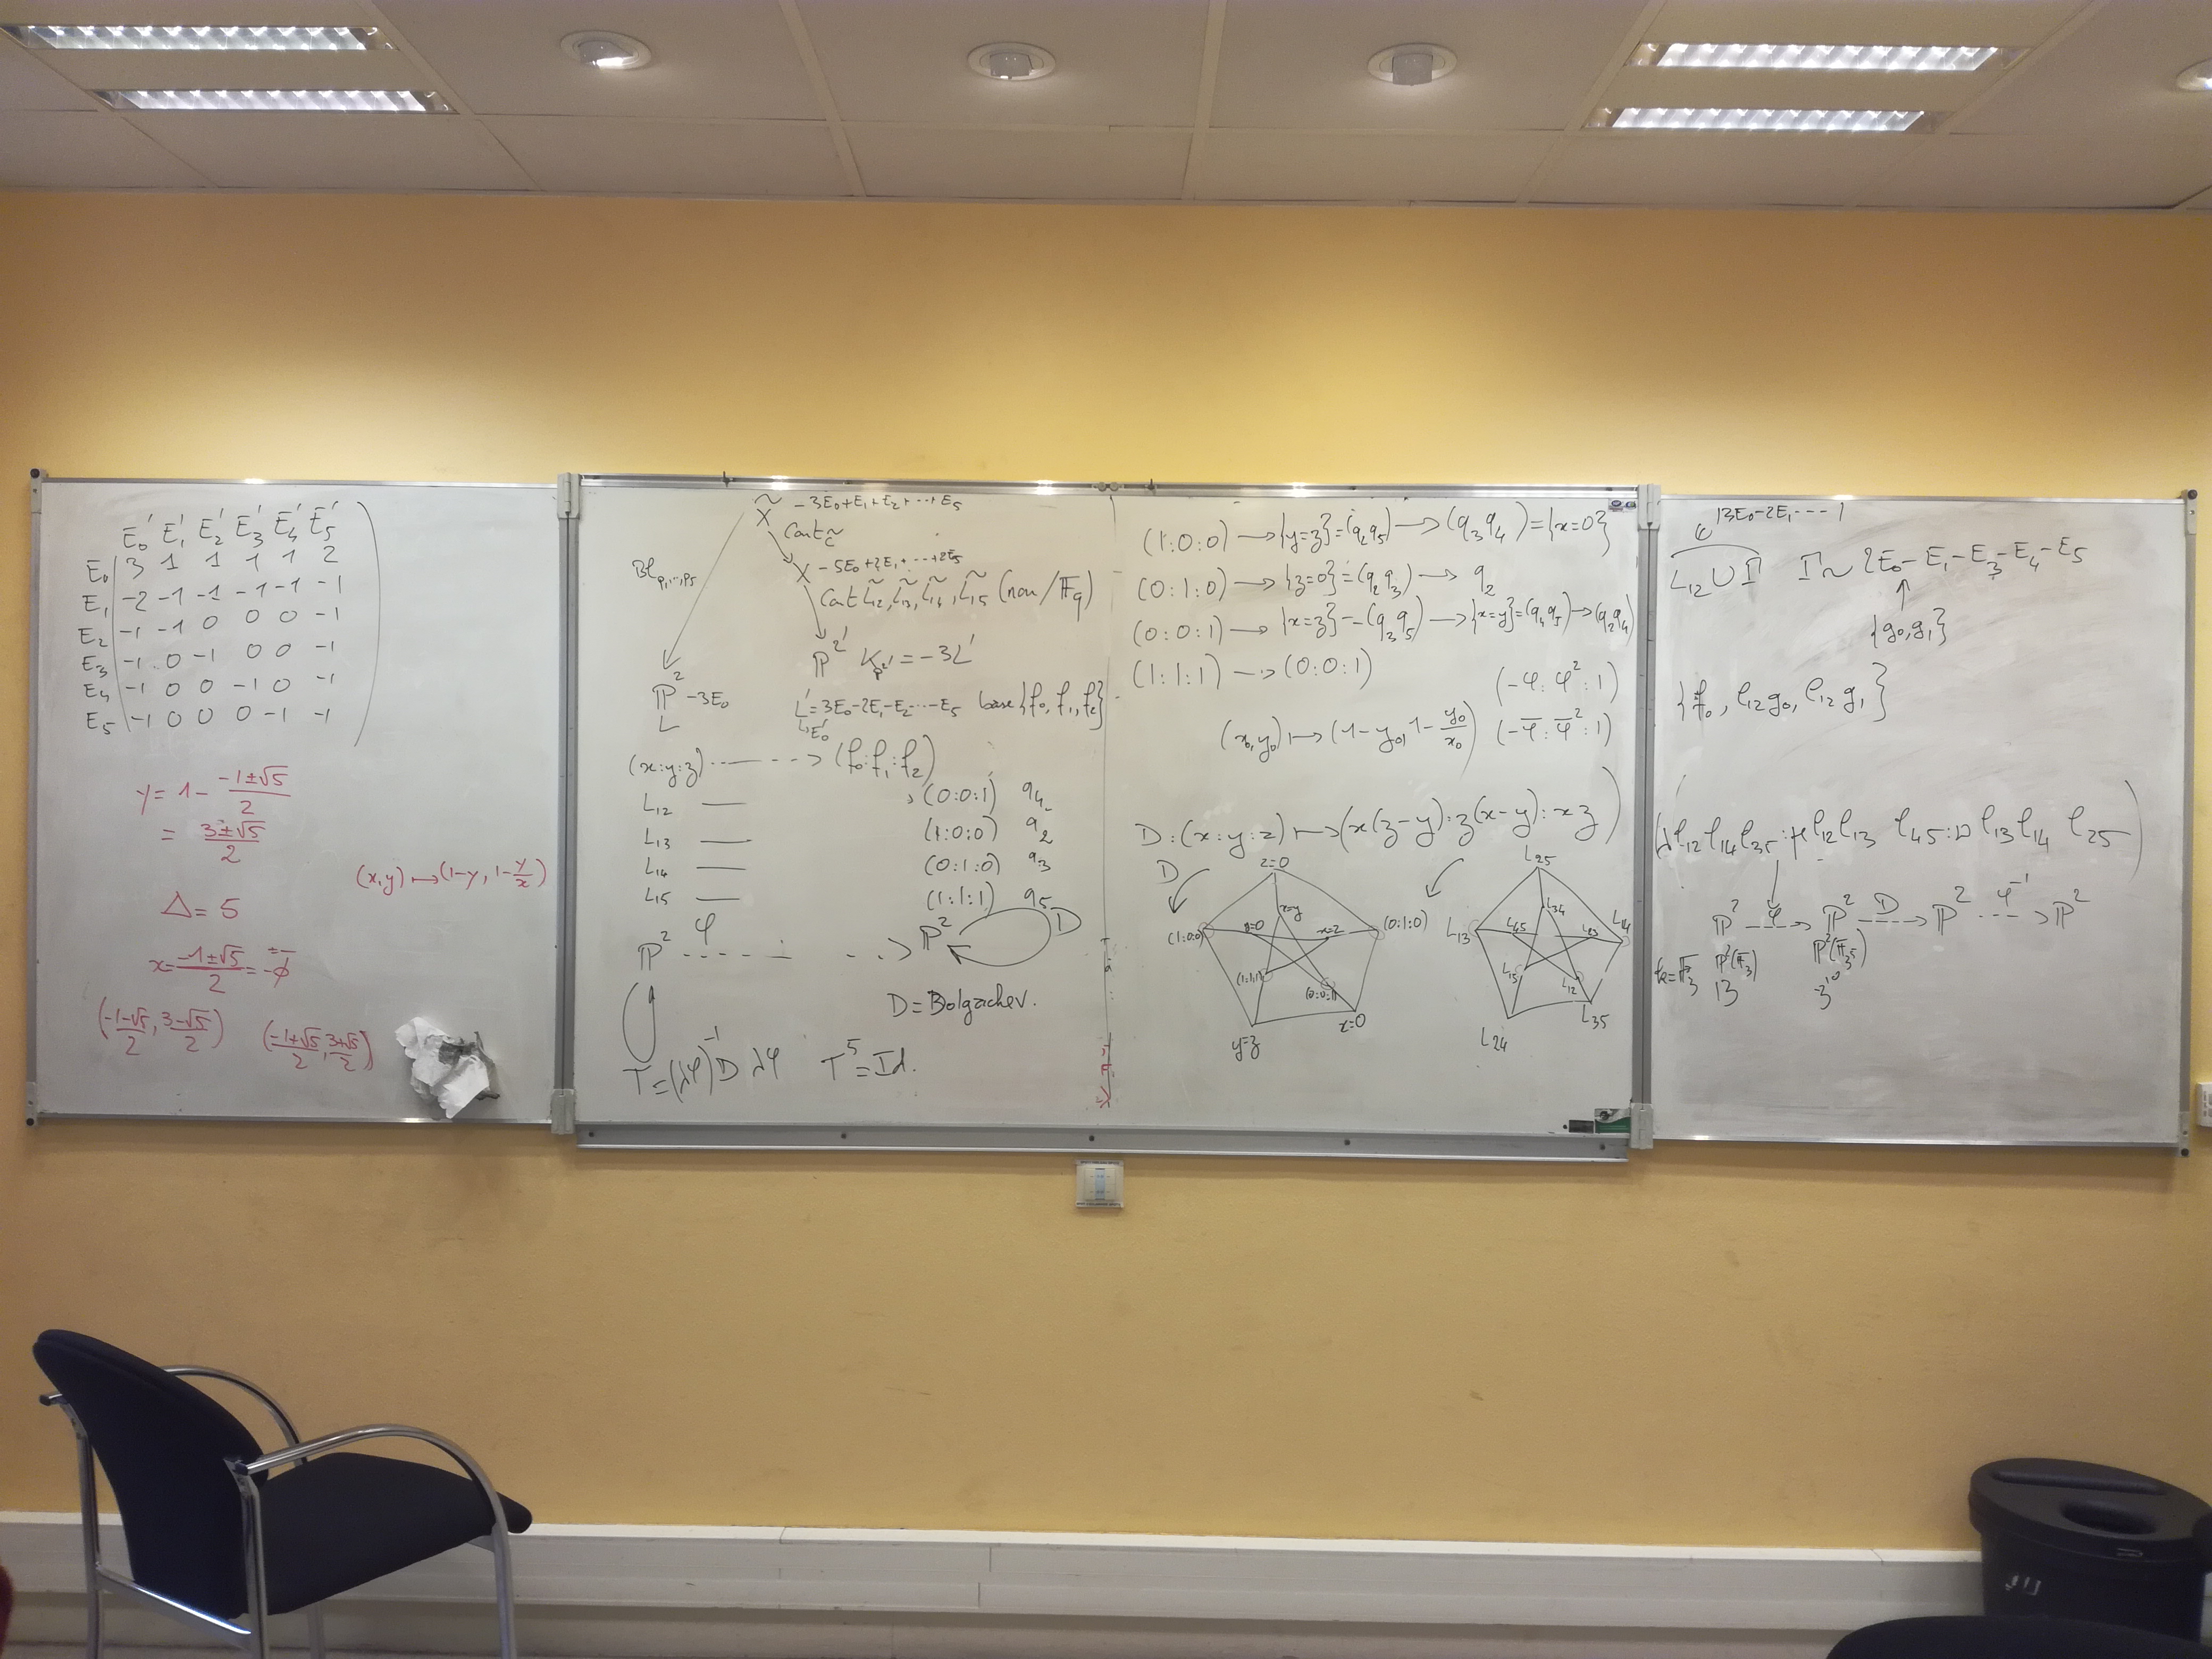 E₀' E₁' E₂' E₃' E₄' E₅'
E₀ 3 1 1 1 1 2
E₁ -2 -1 -1 -1 -1 -1
E₂ -1 -1 0 0 0 -1
E₃ -1 0 -1 0 0 -1
E₄ -1 0 0 -1 0 -1
E₅ -1 0 0 0 -1 -1
y = 1 - (-1±√5)/2
= (3±√5)/2
(x,y) ↦ (1-y, 1-y/x)
Δ = 5
((-1-√5)/2, (3-√5)/2)
X̃ -3E₀+E₁+E₂+⋯+E₅
Cont
Bl p₁,…,p₅
X -5E₀+2E₁+⋯+2E₅
Cont L̃₁₂, L̃₁₃, L̃₁₄, L̃₁₅ (non/𝔽q)
ℙ²' K_ℙ²' = -3L'
ℙ² -3E₀
L
L' = 3E₀-2E₁-E₂-⋯-E₅ base {f₀, f₁, f₂}
E₀'
(x:y:z) ----> (f₀:f₁:f₂)
L₁₂ — (0:0:1) q₄
L₁₃ — (1:0:0) q₂
L₁₄ — (0:1:0) q₃
L₁₅ — (1:1:1) q₅
ℙ² --φ--> ℙ² D
D = Bolgachev.
T = (λφ)⁻¹ D λφ T⁵ = Id.
(1:0:0) → {y=z} = (q₂q₅) → (q₃q₄) = {x=0}
(0:1:0) → {z=0} = (q₂q₃) → q₂
(0:0:1) → {x=z} = (q₃q₅) → {x=y} = (q₄q₅) → (q₂q₄)
(1:1:1) → (0:0:1)
(-φ:φ²:1)
(x₀,y₀) ↦ (1-y₀, 1-y₀/x₀) (-φ̄:φ̄²:1)
D:(x:y:z) ↦ (x(z-y):z(x-y):xz)
D z=0
x=y
(1:0:0) y=0 x=z (0:1:0)
(1:1:1) (0:0:1)
y=z x=0
L₂₅
L₃₄
L₁₃ L₄₅ L₂₃ L₁₄
L₁₅ L₁₂
L₂₄ L₃₅
|3E₀-2E₁-⋯|
L₁₂ ∪ Γ Γ ~ 2E₀-E₁-E₃-E₄-E₅
{g₀,g₁}
{f₀, ℓ₁₂g₀, ℓ₁₂g₁}
(λℓ₁₂ℓ₁₄ℓ₃₅ : μℓ₁₂ℓ₁₃ ℓ₄₅ : νℓ₁₃ℓ₁₄ ℓ₂₅)
ℙ² --φ--> ℙ² --D--> ℙ² --φ⁻¹--> ℙ²
k=𝔽₃ ℙ²(𝔽₃) ℙ²(𝔽₃⁵)
13 3¹⁰